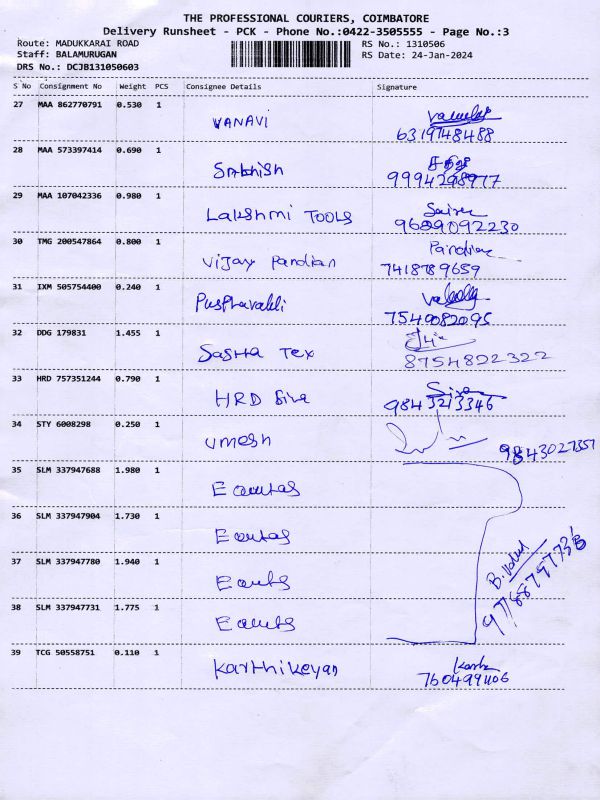 THE PROFESSIONAL COURIERS, COIMBATORE
Delivery Runsheet - PCK - Phone No.:0422-3505555 - Page No.:3
Route: MADUKKARAI ROAD RS No.: 1310506
Staff: BALAMURUGAN RS Date: 24-Jan-2024
DRS No.: DCJB131050603
S No Consignment No Weight PCS Consignee Details Signature
27 MAA 862770791 0.530 1 VANAVI
6319748488
28 MAA 573397414 0.690 1
29 MAA 107042336 0.980 1 Lakshmi TOOLS
9689092230
30 TMG 200547864 0.800 1 Vijay Pandian Pandian
7418789659
31 IXM 505754400 0.240 1 Pusphavalli
7549082095
32 DDG 179831 1.455 1 SASHA Tex
8754822322
33 HRD 757351244 0.790 1 HRD Siva Siva
9843213346
34 STY 6008298 0.250 1 Umesh
35 SLM 337947688 1.980 1
36 SLM 337947904 1.730 1
37 SLM 337947780 1.940 1
38 SLM 337947731 1.775 1
39 TCG 50558751 0.110 1 Karthikeyan